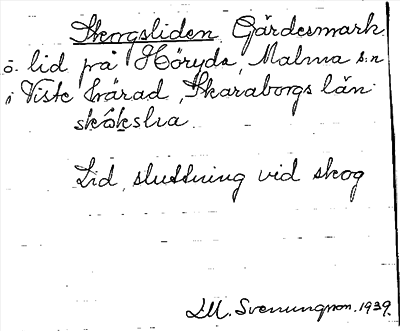 Skogsliden Gärdesmark
o. lid på Höryda, Malma s:n
i Viste härad, Skaraborgs län
Lid, sluttning vid skog
D.M. Svenungson. 1939.